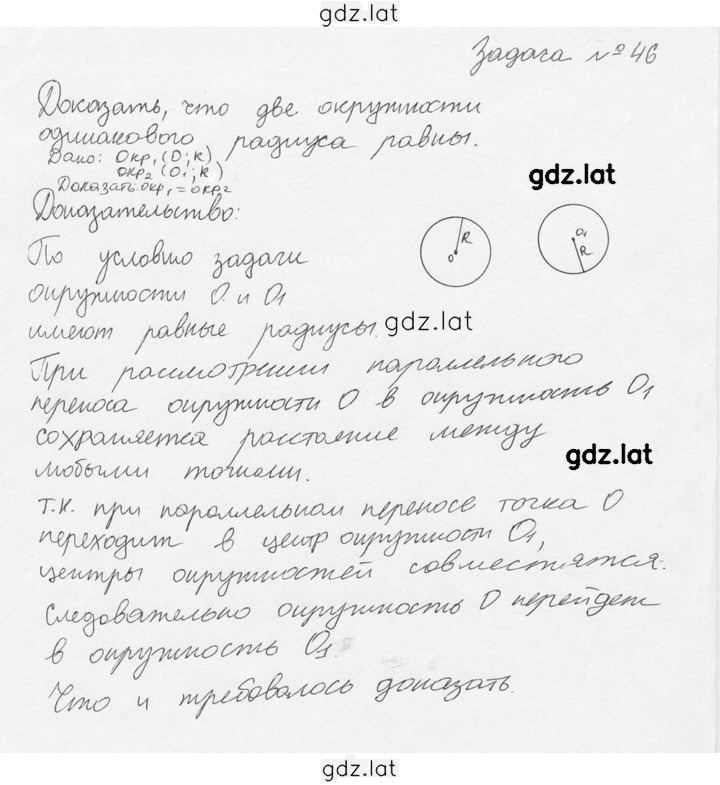 gdz.lat
Задача № 46
Доказать, что две окружности
одинакового радиуса равны.
Дано: Окр₁(O; R)
Окр₂(O₁; R)
Доказать: окр₁ = окр₂
gdz.lat
Доказательство:
R
O
O₁
R
По условию задачи
окружности O и O₁
имеют равные радиусы.
gdz.lat
При рассмотрении параллельного
переноса окружности O в окружность O₁
сохраняется расстояние между
любыми точками.
gdz.lat
т.к. при параллельном переносе точка O
переходит в центр окружности O₁,
центры окружностей совместятся.
Следовательно окружность O перейдет
в окружность O₁.
Что и требовалось доказать.
gdz.lat